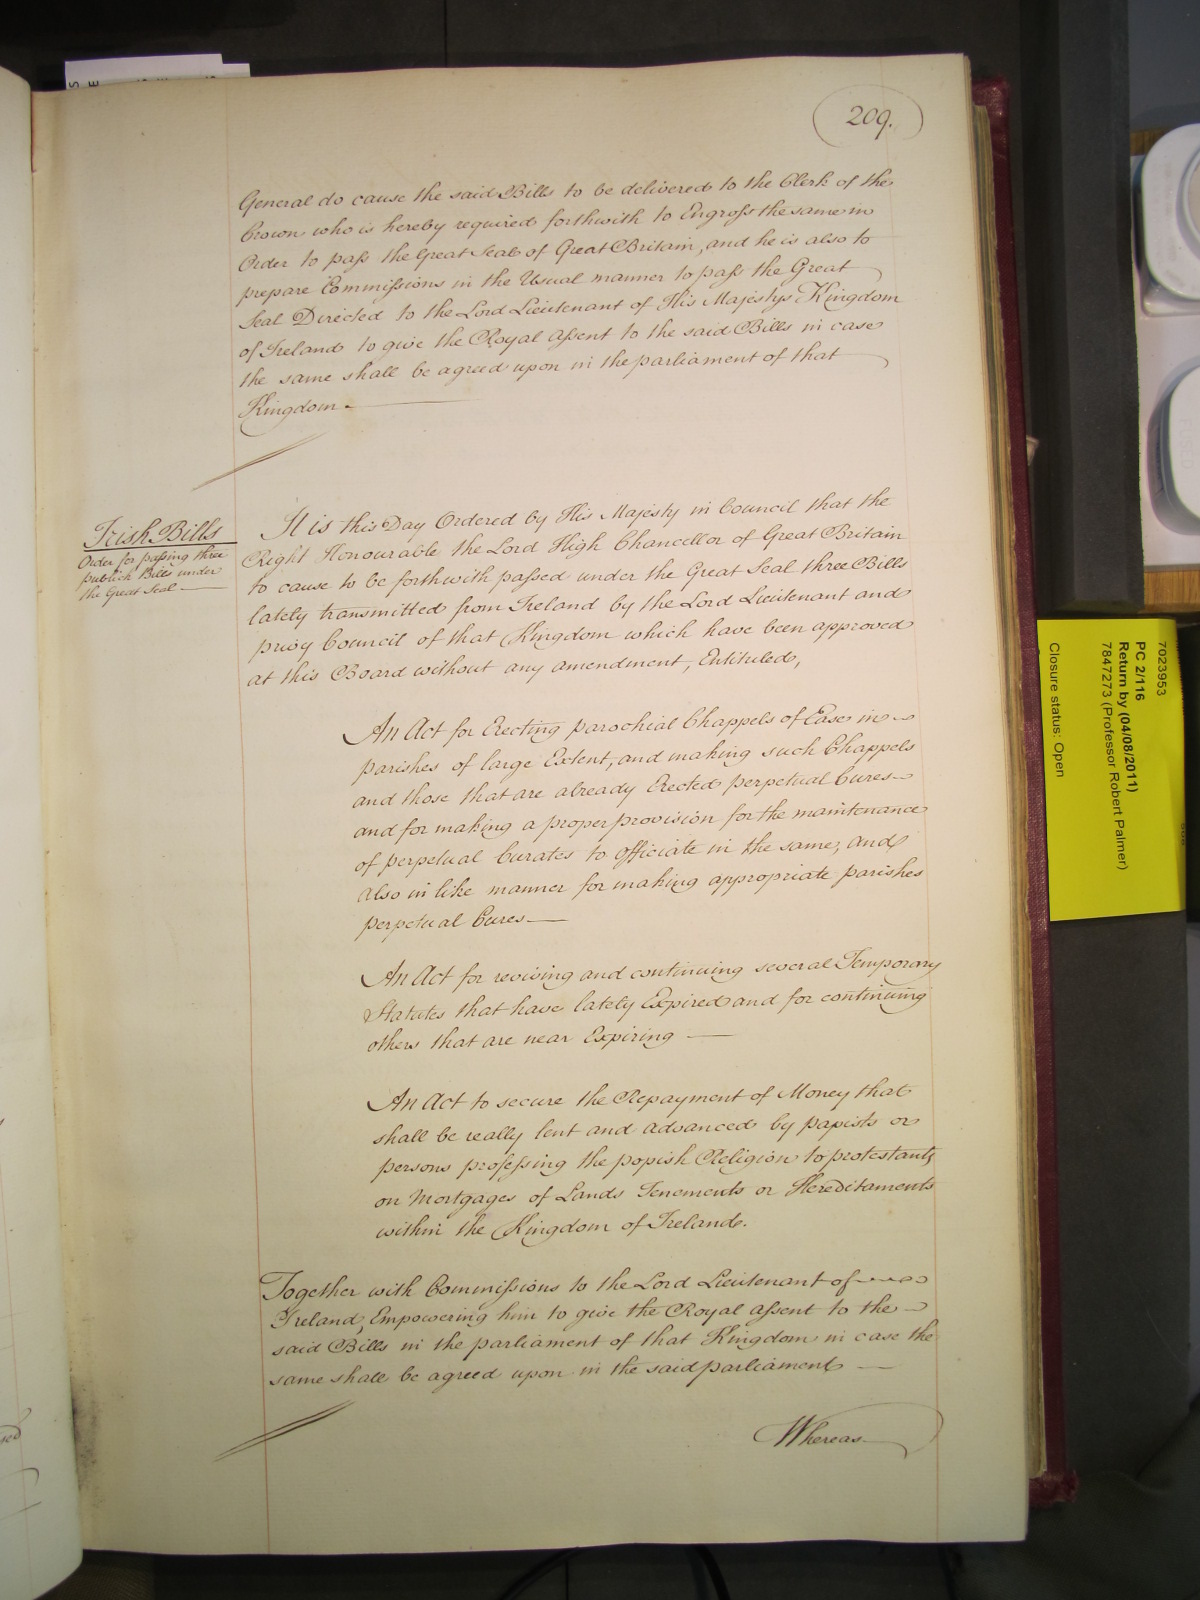 209.
General do cause the said Bills to be delivered to the Clerk of the
Crown who is hereby required forthwith to Engross the same in
Order to pass the Great Seal of Great Britain, and he is also to
prepare Commissions in the Usual manner to pass the Great
Seal Directed to the Lord Lieutenant of His Majestys Kingdom
of Ireland to give the Royal Assent to the said Bills in case
the same shall be agreed upon in the parliament of that
Kingdom.
Irish Bills
Order for passing three
publick Bills under
the Great Seal
It is this Day Ordered by His Majesty in Council that the
Right Honourable the Lord High Chancellor of Great Britain
to cause to be forthwith passed under the Great Seal three Bills
lately transmitted from Ireland by the Lord Lieutenant and
privy Council of that Kingdom which have been approved
at this Board without any amendment, Entituled,
An Act for Erecting parochial Chappels of Ease in
parishes of large Extent, and making such Chappels
and those that are already Erected perpetual Cures
and for making a proper provision for the maintenance
of perpetual Curates to officiate in the same, and
also in like manner for making appropriate parishes
perpetual Cures
An Act for reviving and continuing several Temporary
Statutes that have lately Expired and for continuing
others that are near Expiring
An Act to secure the Repayment of Money that
shall be really lent and advanced by papists or
persons professing the popish Religion to protestants
on Mortgages of Lands Tenements or Hereditaments
within the Kingdom of Ireland.
Together with Commissions to the Lord Lieutenant of
Ireland, Empowering him to give the Royal Assent to the
said Bills in the parliament of that Kingdom in case the
same shall be agreed upon in the said parliament
Whereas
7023953
PC 2/116
Return by (04/08/2011)
7847273 (Professor Robert Palmer)
Closure status: Open